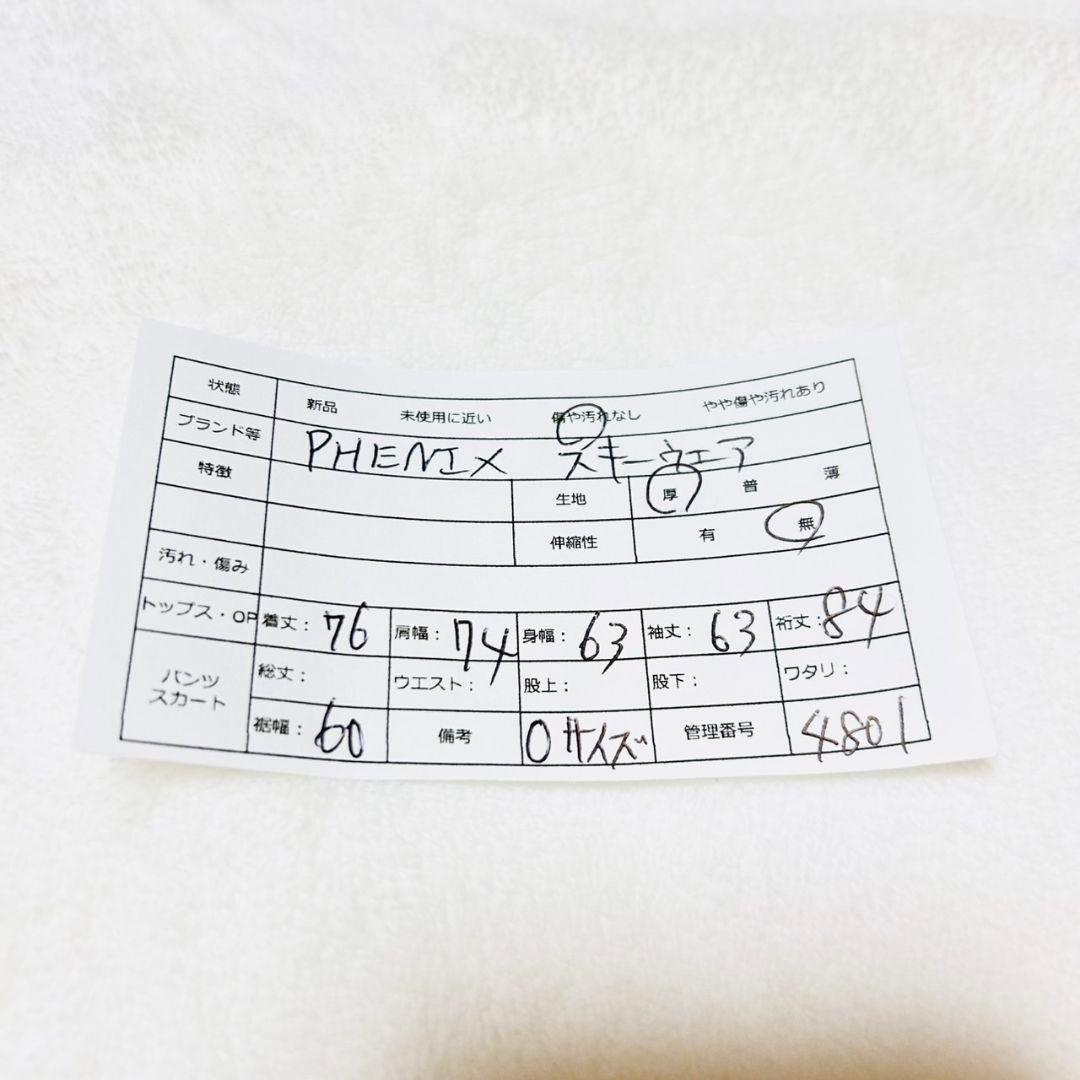 状態 新品 未使用に近い 傷や汚れなし やや傷や汚れあり
ブランド等 PHENIX スキーウェア
特徴 生地 厚 普 薄
伸縮性 有 無
汚れ・傷み
トップス・OP 着丈： 76 肩幅： 74 身幅： 63 袖丈： 63 裄丈： 84
パンツ スカート 総丈： ウエスト： 股上： 股下： ワタリ：
裾幅： 60 備考 0サイズ 管理番号 4801